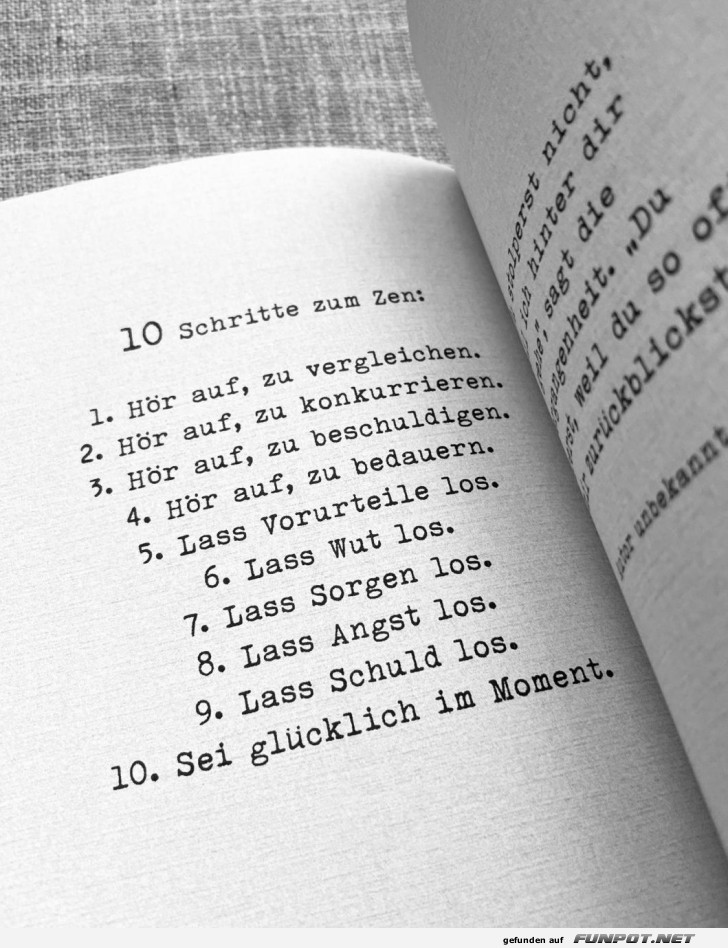 10 Schritte zum Zen:
1. Hör auf, zu vergleichen.
2. Hör auf, zu konkurrieren.
3. Hör auf, zu beschuldigen.
4. Hör auf, zu bedauern.
5. Lass Vorurteile los.
6. Lass Wut los.
7. Lass Sorgen los.
8. Lass Angst los.
9. Lass Schuld los.
10. Sei glücklich im Moment.
stolperst nicht,
ich hinter dir
sagt die
„Du
weil du so
zurückblickst
unbekannt
gefunden auf FUNPOT.NET